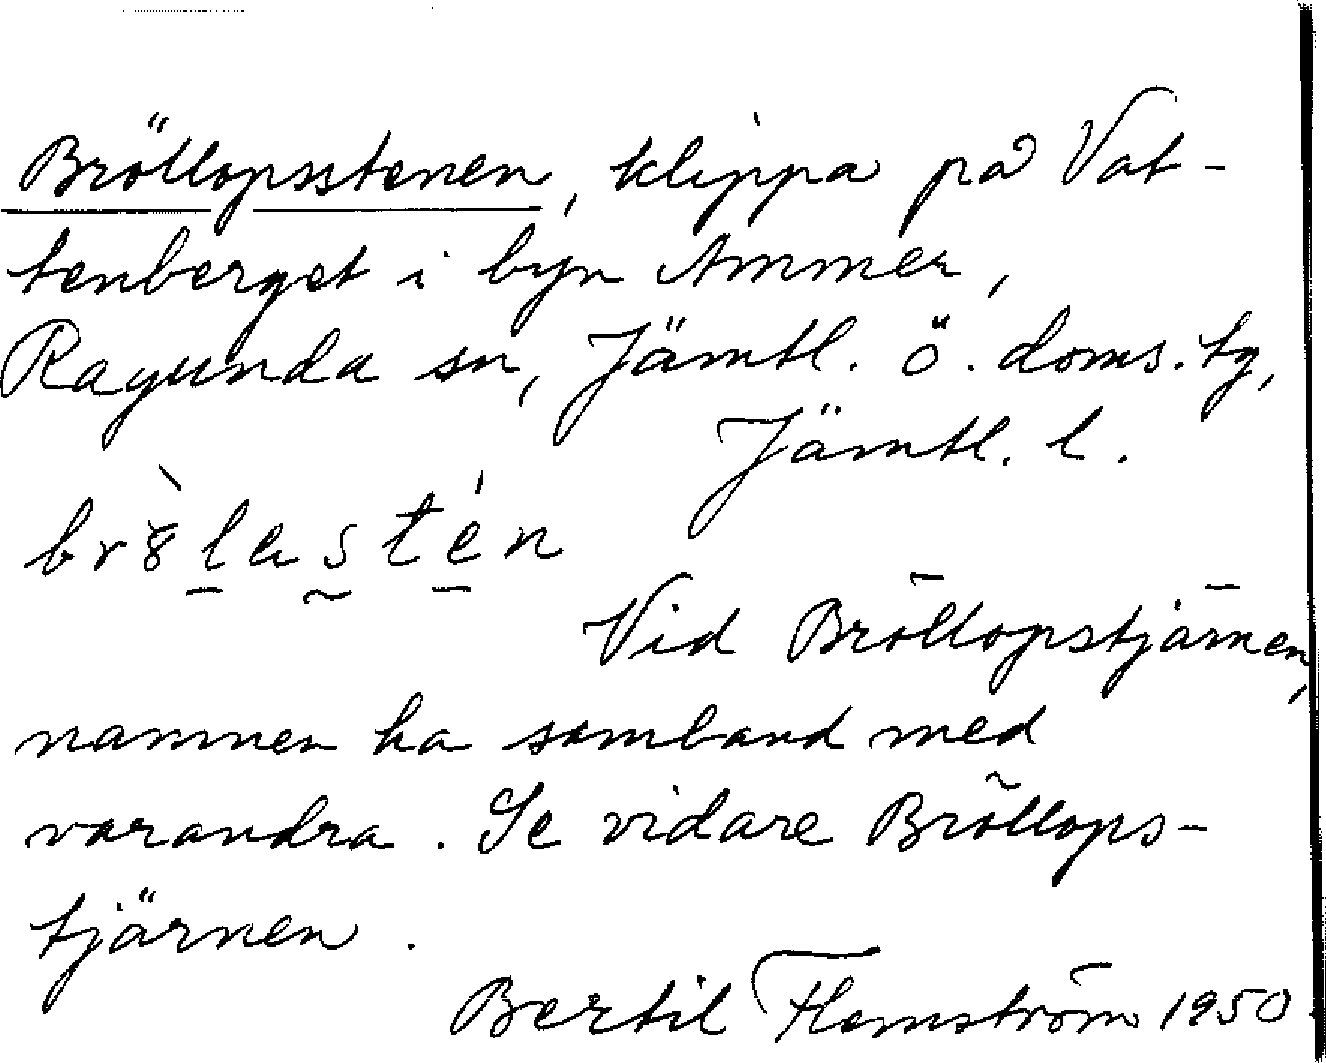 Bröllopsstenen, klippa på Vat-
tenberget i byn Ammer,
Ragunda sn, Jämtl. ö. doms. tg,
Jämtl. l.
brö̀lastén
Vid Bröllopstjärnen,
namnen ha samband med
varandra. Se vidare Bröllops-
tjärnen.
Bertil Flemström 1950.